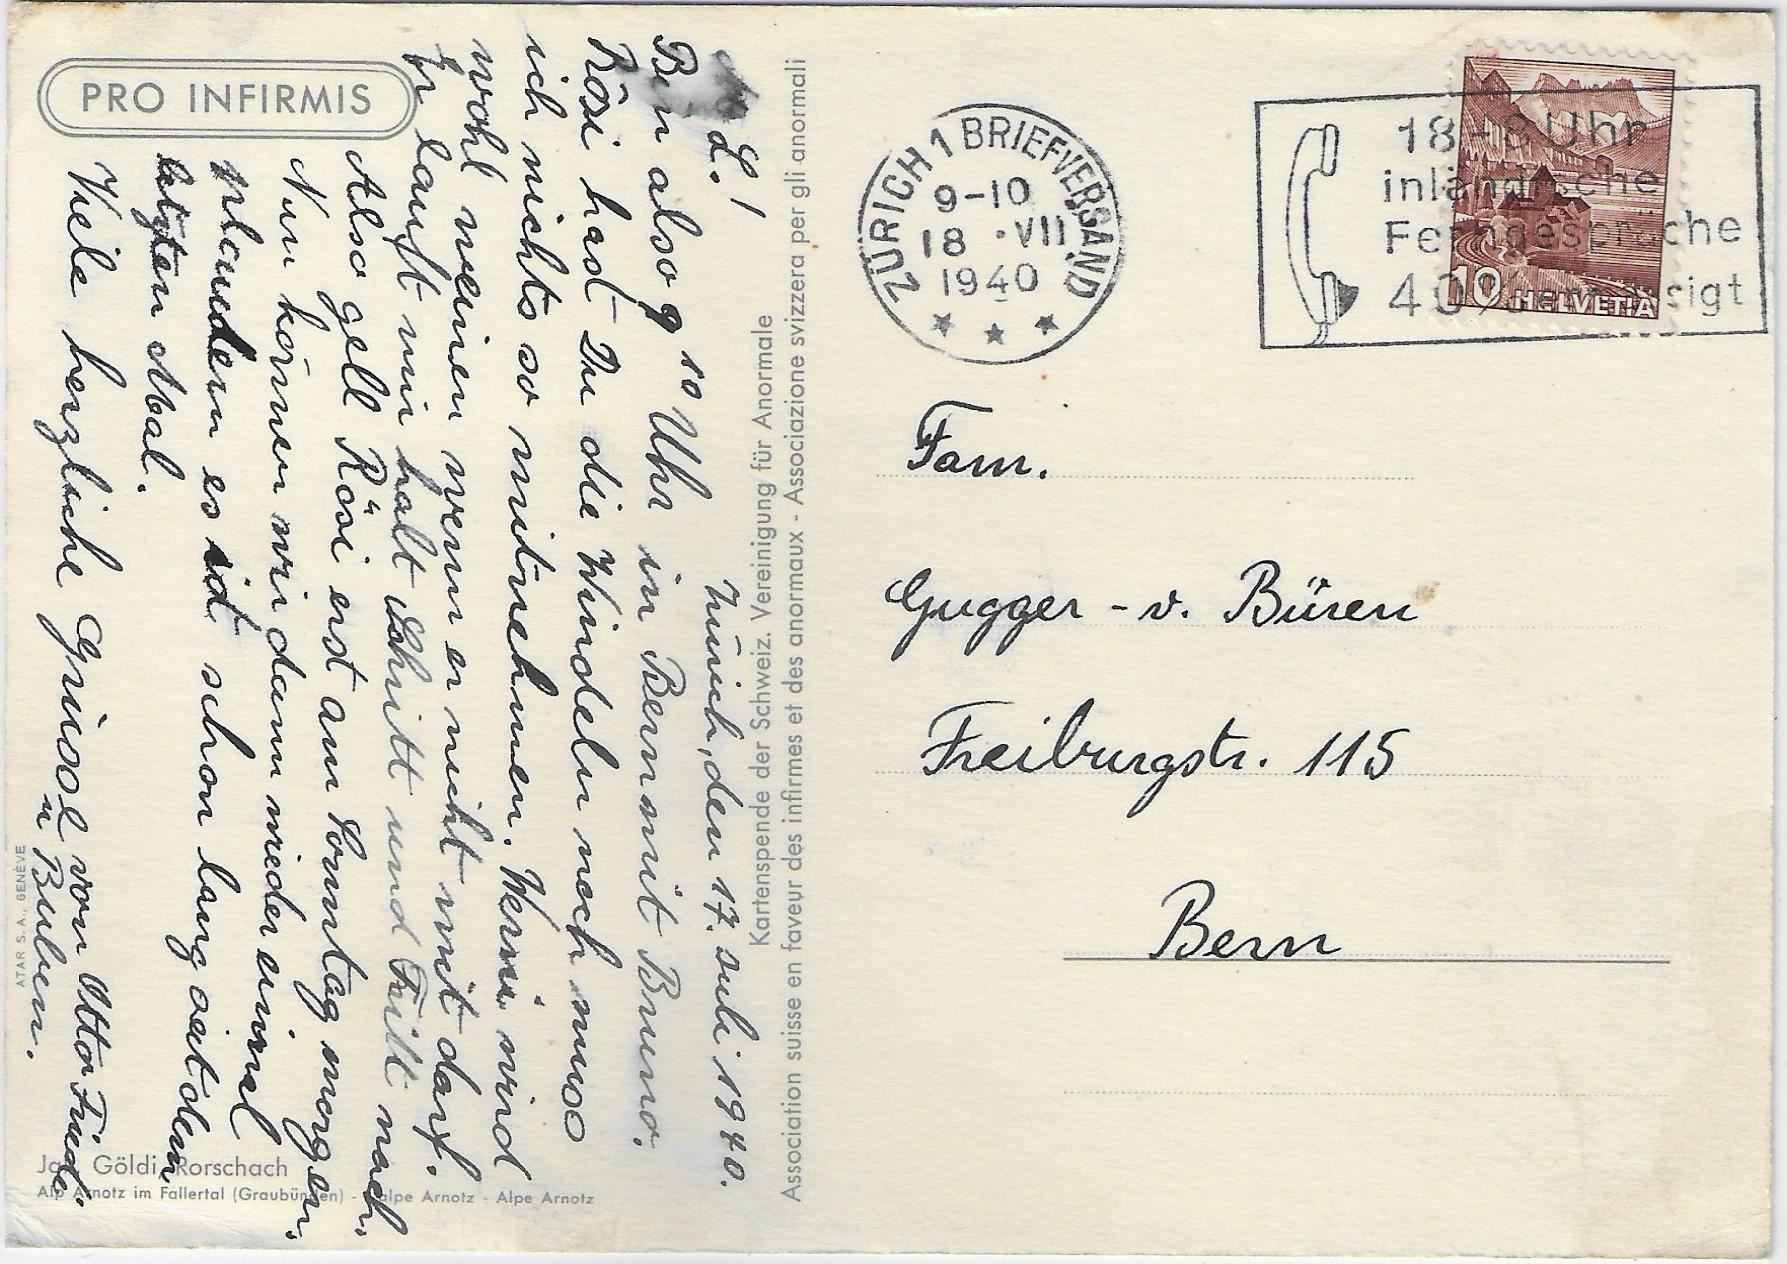 PRO INFIRMIS
Zürich, den 17. Juli 1940.
L. !
Bin also 9 10 Uhr in Bern mit Bruno.
Rösi hast Du die Windeln noch muss
ich nichts so mitnehmen. Werni wird
wohl weinen wenn er nicht mit darf.
Er lauft mir halt Schritt und Tritt nach.
Also gell Rösi erst am Sonntag morgen.
Nun können wir dann wieder einmal
plaudern es ist schon lang seit dem
letzten Mal.
Viele herzliche Grüsse von Otto Friede.
u Buben.
Kartenspende der Schweiz. Vereinigung für Anormale
Association suisse en faveur des infirmes et des anormaux - Associazione svizzera per gli anormali
ATAR S. A., GENÈVE
Göldi, Rorschach
Alp Arnotz im Fallertal (Graubünden) - L'alpe Arnotz - Alpe Arnotz
ZÜRICH 1 BRIEFVERSAND
9-10
18 ·VII
1940
18-8 Uhr
inländische
Ferngespräche
40%
10 HELVETIA
Fam.
Gugger - v. Büren
Freiburgstr. 115
Bern